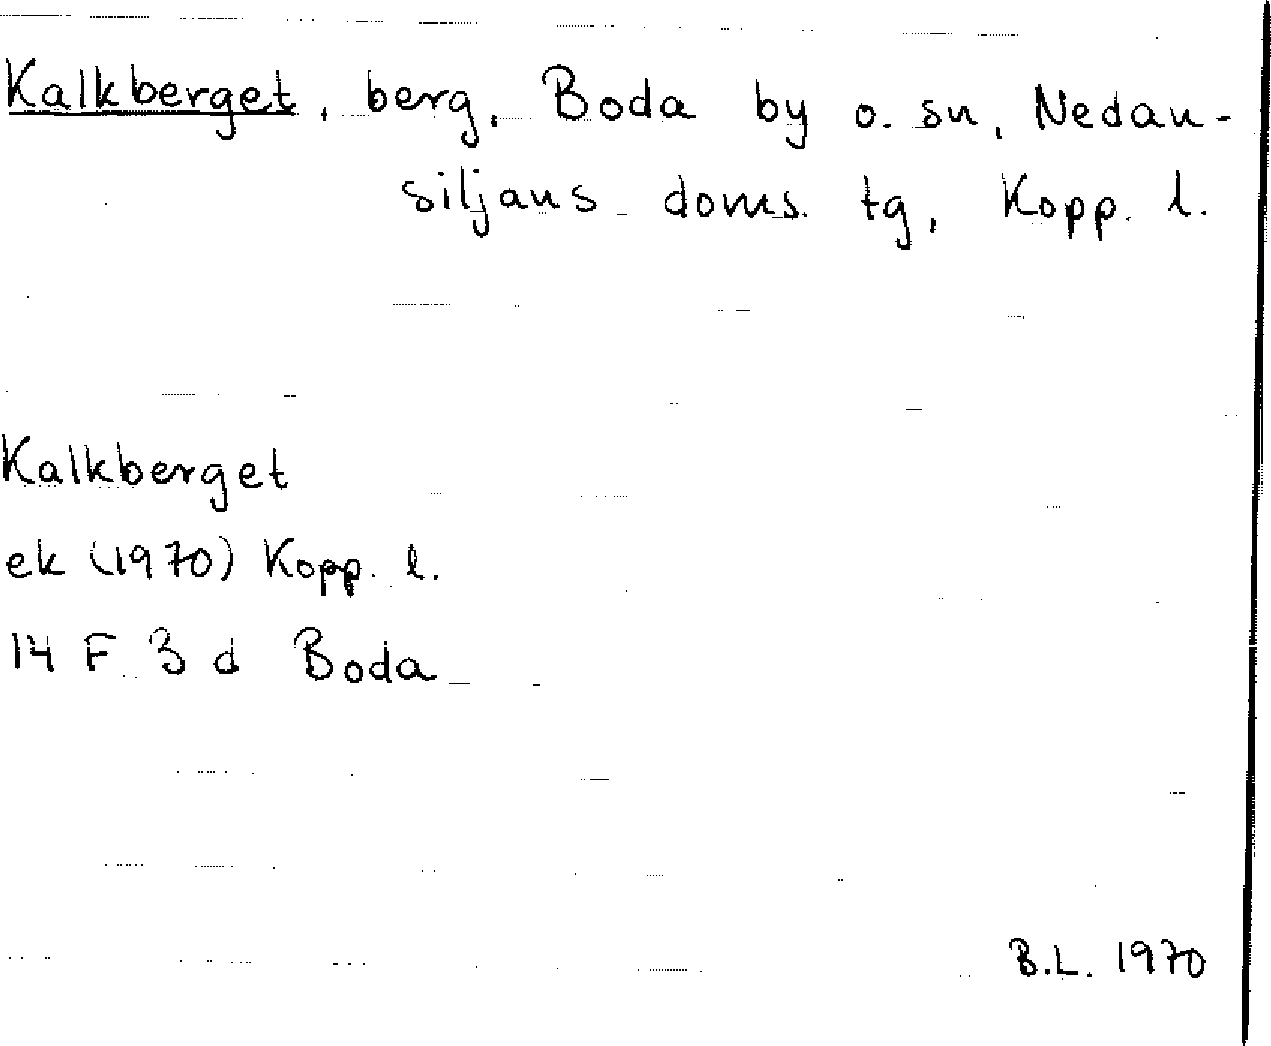 Kalkberget, berg, Boda by o. sn, Nedan-
siljans doms. tg, Kopp. l.
Kalkberget
ek (1970) Kopp. l.
14 F 3 d Boda
B.L. 1970